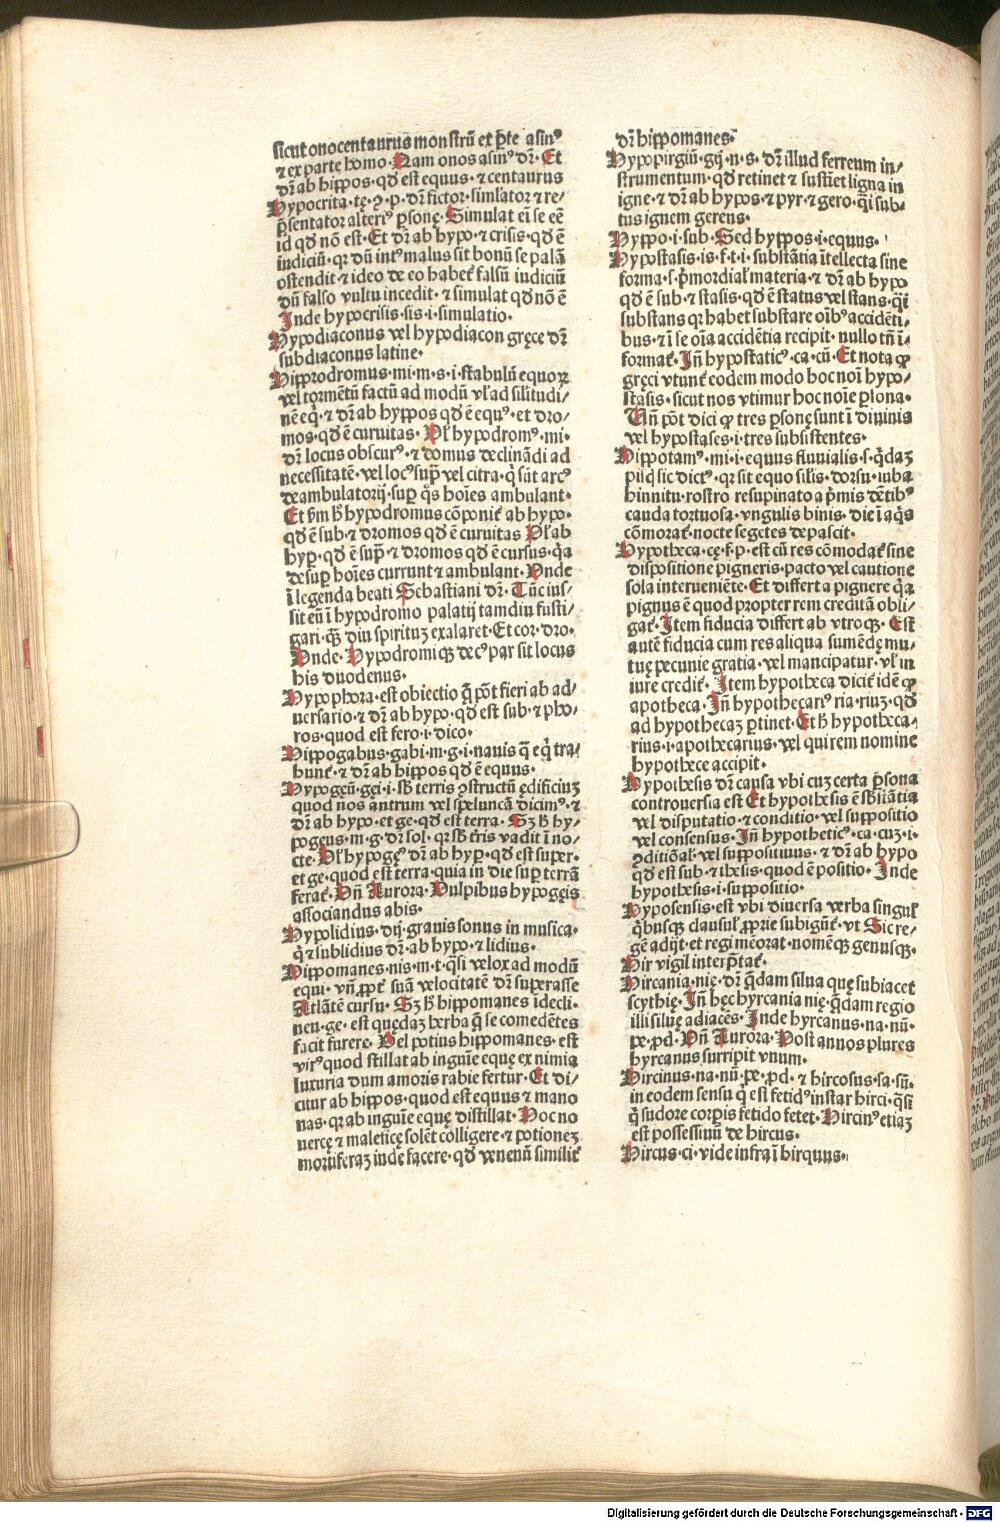 sicut onocentaurus monstrū et ꝑte asinꝰ
⁊ ex parte homo· Nam onos asinꝰ dr̄· Et
dr̄ ab hippos· qd̛ est equus· ⁊ centaurus
Hypocrita·tę·ꝯ·p· dr̄ fictor·simlator ⁊ re-
p̄sentator alteriꝰ ꝑsonę· Simulat eī se eē
id qd̛ nō est· Et dr̄ ab hypo·⁊ crisis·qd̛ ē
iudiciū·qr dū intꝰ malus sit bonū se palā
ostendit·⁊ ideo de eo habet̛ falsū iudiciū
dū falso vultu incedit·⁊ simulat qd̛ nō ē
Inde hypocrisis·sis·i·simulatio·
Hypodiaconus vel hypodiacon gręce dr̄
subdiaconus latine·
Hipprodromus·mi·m·s·i·stabulū equoꝝ
vel tormētū factū ad modū vl̛ ad silitudi/
nē eq̇·⁊ dr̄ ab hyppos qd̛ ē equꝰ·et dro/
mos·qd̛ ē curuitas· Vl̛ hypodromꝰ·mi·
dr̄ locus obscurꝰ·⁊ domus declinādi ad
necessitatē·vel locꝰ sup̄ vel citra·q̇ sūt arcꝰ
deambulatorij·suꝑ q̄s hoīes ambulant·
Et ẜm h̛ hypodromus cōponit̛ ab hypo·
qd̛ ē sub·⁊ dromos qd̛ ē curuitas Vl̛ ab
hyꝑ·qd̛ ē suꝑ·⁊ dromos qd̛ ē cursus·q̄a
desuꝑ hoīes currunt ⁊ ambulant· Vnde
ī legenda beati Sebastiani dr̄· Tūc ius/
sit eū ī hypodromo palatij tamdiu fusti/
gari·qȝ diu spirituȝ exalaret·Et cor·dro·
Vnde· Hypodromiqȝ decꝰ par sit locus
his duodenus·
Hypophora·est obiectio q̄ pōt fieri ab ad/
uersario·⁊ dr̄ ab hypo·qd̛ est sub·⁊ pho/
ros·quod est fero·i·dico·
Hippogabus·gabi·m·g·i·nauis q̄ eq̇ tra/
hunt̛·⁊ dr̄ ab hippos qd̛ ē equus·
Hypogeū·gei·i·sb̛ terris ꝯstructū ędificiuȝ
quod nos antrum vel speluncā dicimꝰ·⁊
dr̄ ab hypo·et ge·qd̛ est terra· Sȝ h̛ hy/
pogeus·m·g·dr̄ sol·qr sb̛ tr̄is vadit ī no/
cte· Vl̛ hypogęꝰ dr̄ ab hyꝑ·qd̛ est super·
et ge·quod est terra·quia in die suꝑ terrā
ferat̛· Vn̄ Aurora· Vulpibus hypogęis
associandus abis·
Hypolidius·dij·grauis sonus in musica·
q̇ ⁊ sublidius dr̄·ab hypo·⁊ lidius·
Hippomanes·nis·m·t·q̇si velox ad modū
equi·vn̄ ꝓpt̛ suā velocitatē dr̄ superasse
Atlātē cursu· Sȝ h̛ hippomanes īdecli·
neu·ge·est quędaȝ herba q̄ se comedētes
facit furere· Vel potius hippomanes·est
virꝰ quod stillat ab inguīe equę ex nimia
luxuria dum amoris rabie fertur· Et di/
citur ab hippos·quod est equus ⁊ mano
nas·qr ab inguīe equę distillat· Hoc no
uercę ⁊ maleficę solēt colligere·⁊ potionez
mortiferaȝ inde facere·qd̛ venenū similit̛
dr̄ hippomanes·
Hypopirgiū·gij·n·s· dr̄ illud ferreum in/
strumentum·qd̛ retinet ⁊ sustīet ligna in
igne·⁊ dr̄ ab hypos ⁊ pyr·⁊ gero·q̇si sub/
tus ignem gerens·
Hyppo·i·sub· Sed hyppos·i·equus·
Hypostasis·is·f·t·i·substātia ītellecta sine
forma·s·p̄mordial̛ materia·⁊ dr̄ ab hypo
qd̛ ē sub·⁊ stasis·qd̛ ē status vel stans·q̇si
substans qr habet substare oībꝰ accidēti/
bus·⁊ ī se oīa accidētia recipit·nullo tn̄ ī/
format̛· In̄ hypostaticꝰ·ca·cū· Et nota ꝙ
gręci vtunt̛ eodem modo hoc noī hypo/
stasis·sicut nos vtimur hoc noīe ꝑsona·
Vn̄ pōt dici ꝙ tres ꝑsonę sunt ī diuinis
vel hypostases·i·tres subsistentes·
Hippotamꝰ·mi·i·equus fluuialis·s·q̇daȝ
pisꝗ sic dictꝰ·qr sit equo sil̛is·dorsu·iuba
hinnitu·rostro resupinato a p̄mis dētibꝰ
cauda tortuosa·vngulis binis·die ī aq̇s
cōmorat̛·nocte segetes depascit·
Hypotheca·cę·f·p·est cū res cōmodat̛ sine
dispositione pigneris·pacto vel cautione
sola interueniēte· Et differt a pignere q̄a
pignus ē quod propter rem creditā obli/
gat̛· Item fiducia differt ab vtroqȝ· Est
autē fiducia cum res aliqua sumēdę mu/
tuę pecunie gratia·vel mancipatur·vl̛ in
iure credit̛· Item hypotheca dicit̛ idē ꝙ
apotheca· In̄ hypothecariꝰ·ria·riuȝ·qd̛
ad hypothecaȝ ꝑtinet· Et h̛ hypotheca/
rius·i·apothecarius·vel qui rem nomine
hypothece accipit·
Hypothesis dr̄ causa vbi cuȝ certa ꝑsona
controuersia est Et hypothesis ē sb̛stātia
vel disputatio·⁊ conditio·vel suppositio
vel consensus· In̄ hypotheticꝰ·ca·cuȝ·i·
ꝯditiōal̛·vel suppositiuus·⁊ dr̄ ab hypo
qd̛ est sub·⁊ thesis·quod ē positio· Inde
hypothesis·i·suppositio·
Hyposensis·est vbi diuersa verba singul̛
q̇busqȝ clausul̛ ꝓprie subigūt̛·vt Sic re/
gē adijt·et regi meōrat·nomēqȝ genusqȝ·
Hir vigil interp̄tat̛·
Hircania·nię·dr̄ q̄dam silua quę subiacet
scythię· In̄ hęc hyrcania nię·q̄dam regio
illi siluę adiacēs· Inde hyrcanus·na·nū·
pe·ꝓd· Vn̄ Aurora· Post annos plures
hyrcanus surripit vnum·
Hircinus·na·nū·pe·ꝓd·⁊ hircosus·sa·sū·
in eodem sensu q̇ est fetidꝰ instar hirci·q̇si
q̇ sudore corꝑis fetido fetet· Hircinꝰ etiaȝ
est possessiuū de hircus·
Hircus·ci·vide infra ī hirquus·
Digitalisierung gefördert durch die Deutsche Forschungsgemeinschaft - DFG